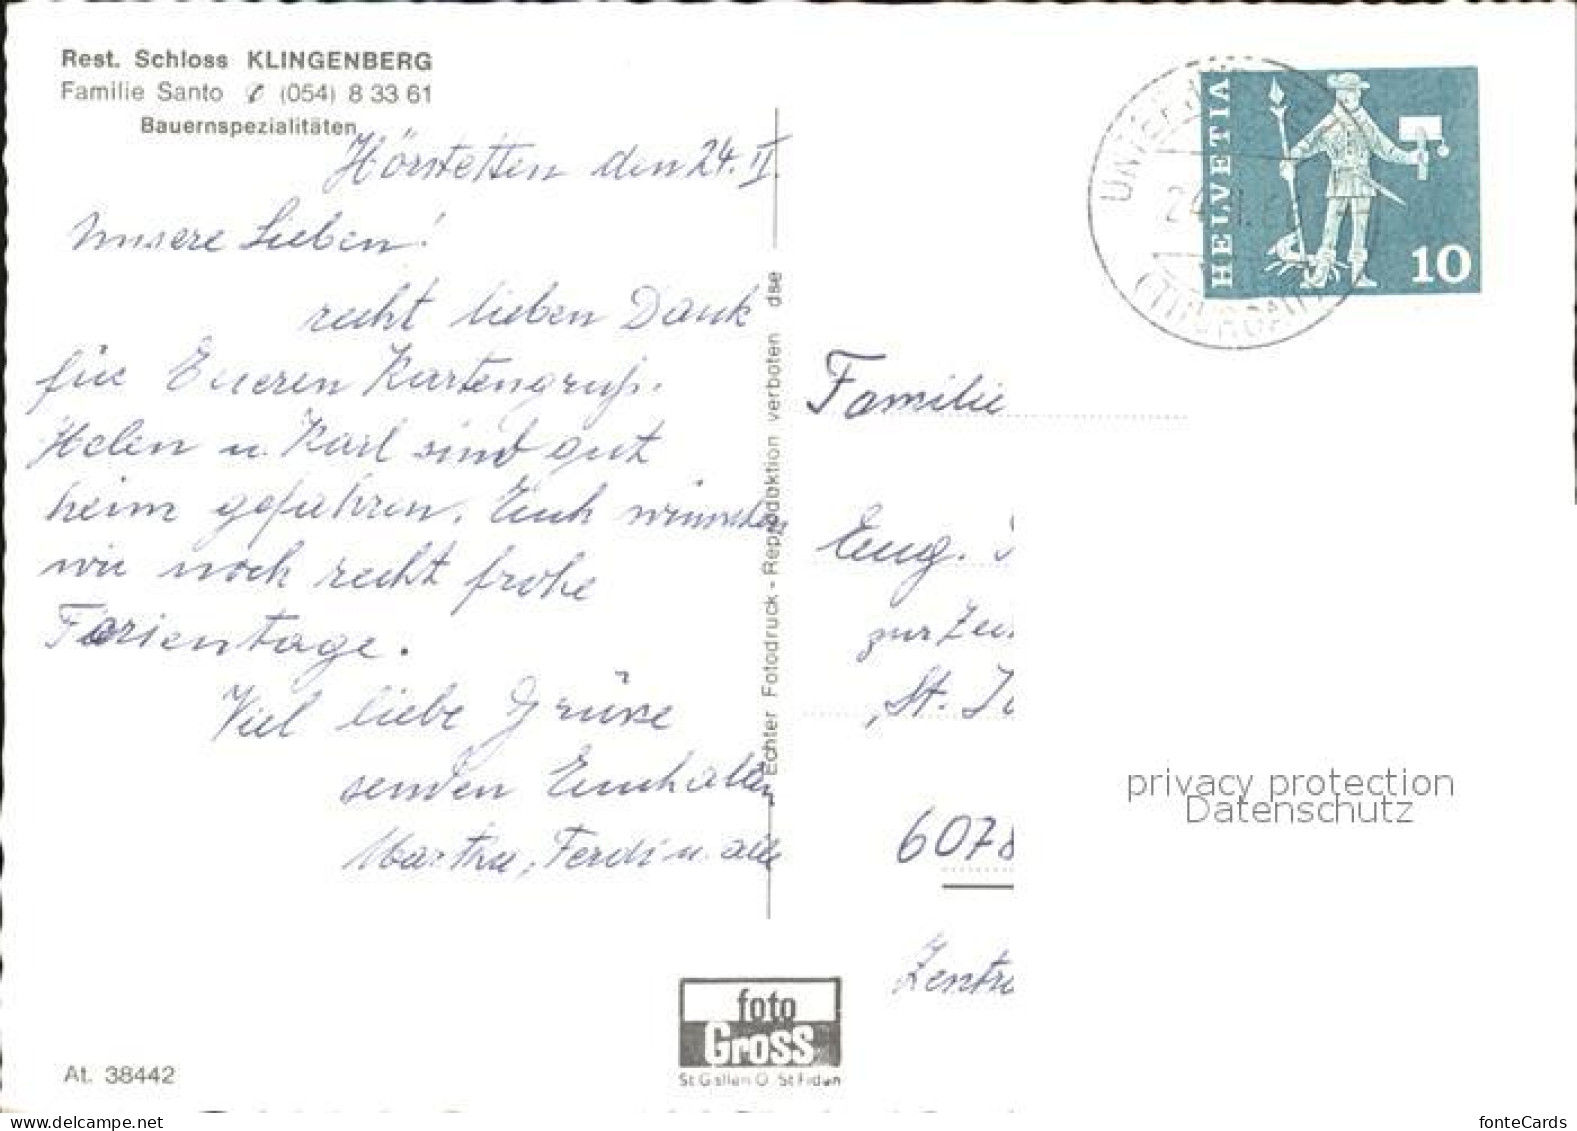 Rest. Schloss KLINGENBERG
Familie Santo (054) 8 33 61
Bauernspezialitäten
Hörstetten den 24. II.
Unsere Lieben!
recht lieben Dank
für Eueren Kartengruß.
Helen u. Karl sind gut
heim gefahren. Euch wünschen
wir noch recht frohe
Ferientage.
Viel liebe Grüsse
senden Euch allen
Martha, Ferdi u. alle
Echter Fotodruck - Reproduktion verboten dse
HELVETIA
10
24.
Familie
Eug.
zur
St.
6078
foto
Gross
St Gallen O St Fiden
At. 38442
privacy protection
Datenschutz
www.delcampe.net
fonteCards